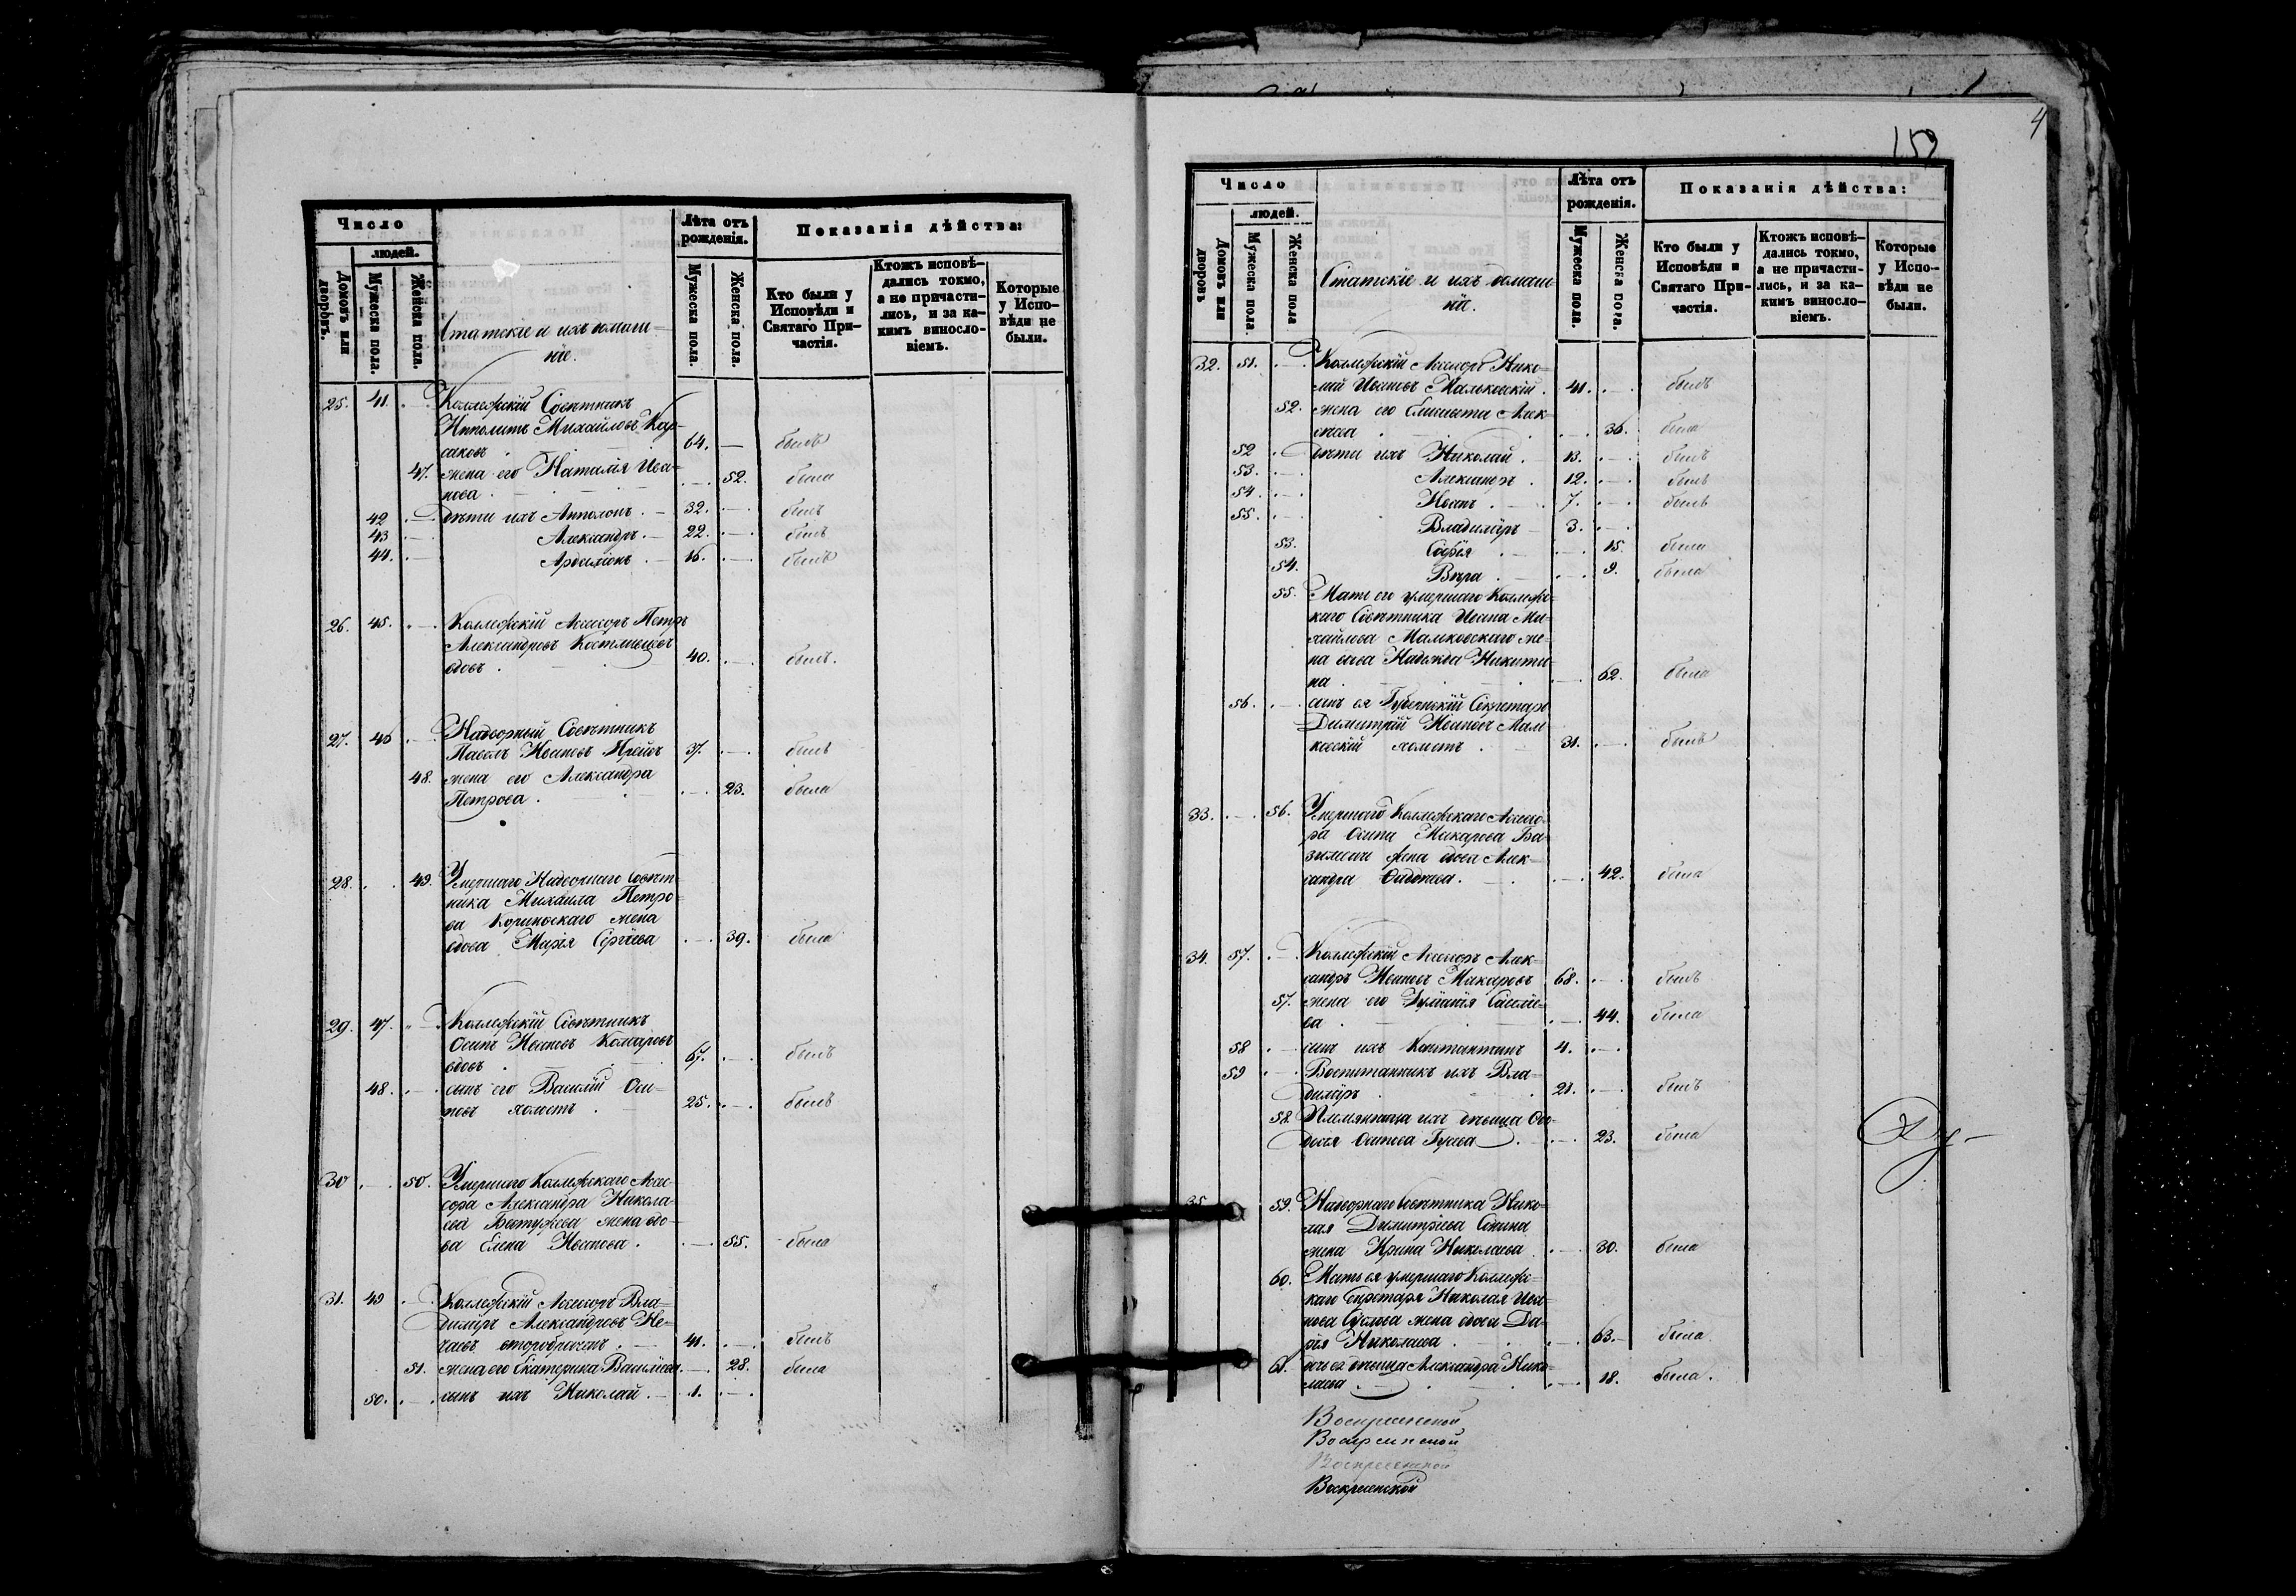 Число
людей.
Домовъ или дворовъ.
Мужеска пола.
Женска пола.
Статскіе и ихъ домаш-
ніе.
Лѣта отъ
рожденія.
Мужеска пола.
Женска пола.
Показанія дѣйства:
Кто были у
Исповѣди и
Святаго При-
частія.
Ктожъ исповѣ-
дались токмо,
а не причасти-
лись, и за ка-
кимъ винosло-
віемъ.
Которые
у Испо-
вѣди не
были.
25. 41. Коллежскій Совѣтникъ
Ипполитъ Михайловъ Кор-
саковъ 64. былъ
47. жена его Наталія Ива-
нова 52. была
42 дѣти ихъ Апполонъ 32. былъ
43 Александръ 22. былъ
44. Ардаліонъ 16. былъ
26. 45. Коллежскій Ассесоръ Петръ
Александровъ
вдовъ 40. былъ.
27. 46 Надворный Совѣтникъ
Павелъ Ивановъ 37. былъ
48. жена его Александра
Петрова 23. была
28. 49. Умершаго Надворнаго Совѣт-
ника Михаила Петро-
ва жена
вдова Марія Сергіева 39. была
29. 47. Коллежскій Совѣтникъ
Осипъ Ивановъ Комаровъ
вдовъ 67. былъ
48. сынъ его Василій Оси-
повъ холостъ 25. былъ
30 50. Умершаго Коллежскаго Ассе-
сора Александра Никола-
ева Бестужева жена вдо-
ва Елена Иванова 55. была
31. 49 Коллежскій Ассесоръ Вла-
диміръ Александровъ Не-
чаевъ второбрачен. 41. былъ
51. жена его Екатерина Васильева 28. была
50. сынъ ихъ Николай 1.
4
159
Число
людей.
Домовъ или дворовъ
Мужеска пола.
Женска пола
Статскіе и ихъ домаш-
ніе.
Лѣта отъ
рожденія.
Мужеска пола.
Женска пола.
Показанія дѣйства:
Кто были у
Исповѣди и
Святаго При-
частія.
Ктожъ исповѣ-
дались токмо,
а не причасти-
лись, и за ка-
кимъ винocло-
віемъ.
Которые
у Испо-
вѣди не
были.
32. 51. Коллежскій Ассесоръ Нико-
лай Ивановъ Мальковскій 41. былъ
52. жена его Елисавета Алек-
сѣева 36. была
52 дѣти ихъ Николай 13. былъ
53. Александръ 12. былъ
54. Иванъ 7. былъ
55. Владиміръ 3.
53. Софія 15. была
54. Вѣра 9. была
55. Мать его умершаго Коллеж-
скаго Совѣтника Ивана Ми-
хайлова Мальковскаго же-
на вдова Надежда Никити-
на 62. была
56. сынъ ея Губернскій Секретарь
Димитрій Ивановъ Маль-
ковскій холостъ 31. былъ
33. 56. Умершаго Коллежскаго Ассесо-
ра Осипа Макарова
жена вдова Алек-
сандра 42. была
34. 57. Коллежскій Ассесоръ Алек-
сандръ Ивановъ Макаровъ 68. былъ
57. жена его
ва 44. была
58 сынъ ихъ Константинъ 4.
59 Воспитанникъ ихъ Вла-
диміръ 21. былъ
58. Племянница ихъ дѣвица
Осипова 23. была
35 59. Надворнаго Совѣтника Нико-
лая Димитріева
жена Ирина Николаева 30. была
60. Мать ея умершаго Коллеж-
скаго Секретаря Николая Ива-
нова жена вдова Да-
рія Николаева 63. была.
61. дочь ея дѣвица Александра Нико-
лаева 18. была.
Воскресенской
Воскресенской
Воскресенской
Воскресенской